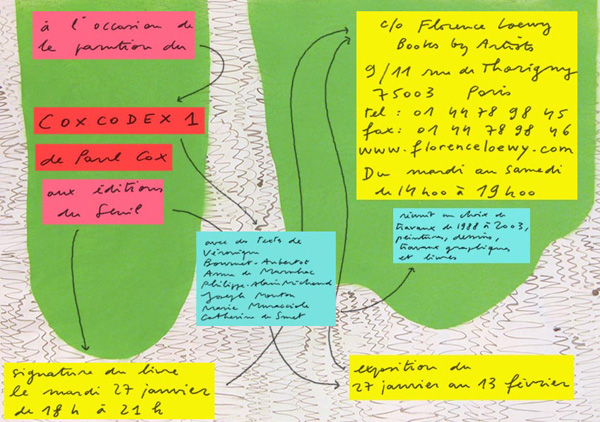 à l'occasion de
la parution du
COXCODEX 1
de Paul Cox
aux éditions
du Seuil
avec des textes de
Véronique
Bouruet-Aubertot
Anne de Marnhac
Philippe-Alain Michaud
Joseph Mouton
Marie Muracciole
Catherine de Smet
signature du livre
le mardi 27 janvier
de 18 h à 21 h
c/o Florence Loewy
Books by Artists
9/11 rue de Thorigny
75003 Paris
tel : 01 44 78 98 45
fax : 01 44 78 98 46
www.florenceloewy.com
Du mardi au samedi
de 14h00 à 19h00
réunit un choix de
travaux de 1988 à 2003,
peintures, dessins,
travaux graphiques
et livres
exposition du
27 janvier au 13 février